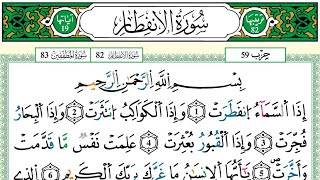 ترتيبها 82 سُورَةُ الِانفِطَارِ آياتها 19
حِزْب 59 سُورَةُ الانفطار 82 سُورَةُ المُطَفِّفِينَ 83
بِسْمِ اللَّهِ الرَّحْمَٰنِ الرَّحِيمِ
إِذَا السَّمَاءُ انفَطَرَتْ ۝1 وَإِذَا الْكَوَاكِبُ انتَثَرَتْ ۝2 وَإِذَا الْبِحَارُ
فُجِّرَتْ ۝3 وَإِذَا الْقُبُورُ بُعْثِرَتْ ۝4 عَلِمَتْ نَفْسٌ مَّا قَدَّمَتْ
وَأَخَّرَتْ ۝5 يَٰأَيُّهَا الْإِنسَٰنُ مَا غَرَّكَ بِرَبِّكَ الْكَرِيمِ ۝6 الَّذِي